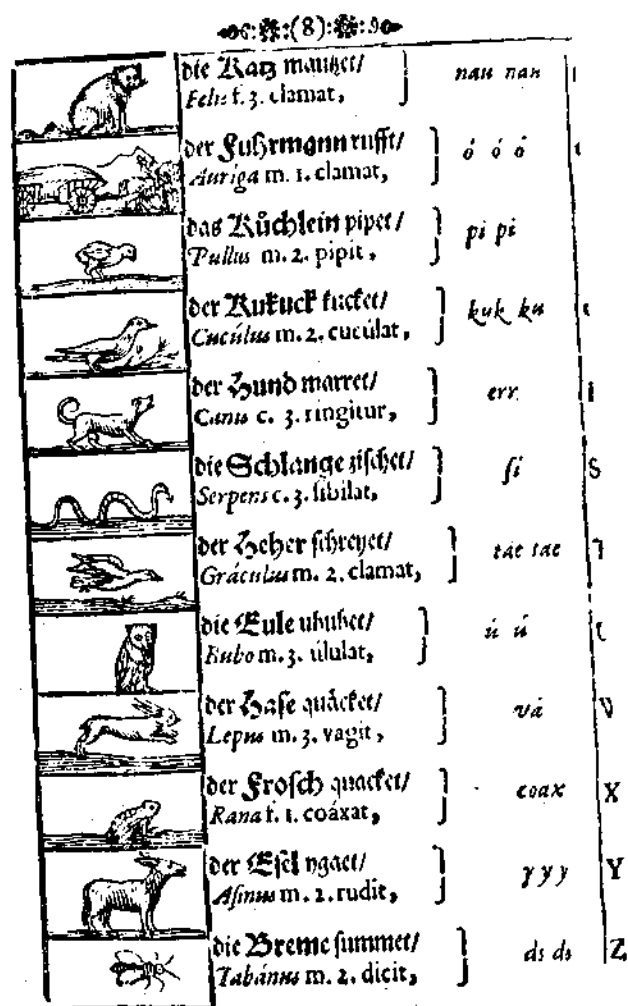 (8)
die Katz mautzet/
Felis f. 3. clamat, } nau nau
der Fuhrmann rufft/
Auriga m. 1. clamat, } ó ó ó
das Kůchlein pipet/
Pullus m. 2. pipit, } pi pi
der Kukuck kucket/
Cucúlus m. 2. cucúlat, } kuk ku
der Hund marret/
Canis c. 3. ringitur, } err
die Schlange zischet/
Serpens c. 3. sibilat, } ſi S
der Heher schreyet/
Gráculus m. 2. clamat, } tae tae
die Eule uhuhet/
Bubo m. 3. úlulat, } ú ú
der Hase quäcket/
Lepus m. 3. vagit, } vá V
der Frosch quacket/
Rana f. 1. coáxat, } coax X
der Esel ygaet/
Asinus m. 2. rudit, } y y y Y
die Breme summet/
Tabánus m. 2. dicit, } ds ds Z